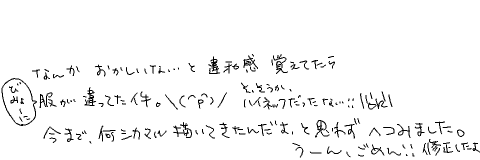 なんか おかしいなぁ…と 違和感 覚えてたら
びみょーに
服が 違ってた件。\(^p^)/ そ、そうか、ハイネックだったなぃ!!
今まで、何シカマル 描いてきたんだよ、と思わず へつみました。
うーん、ごめん!! 修正したよ